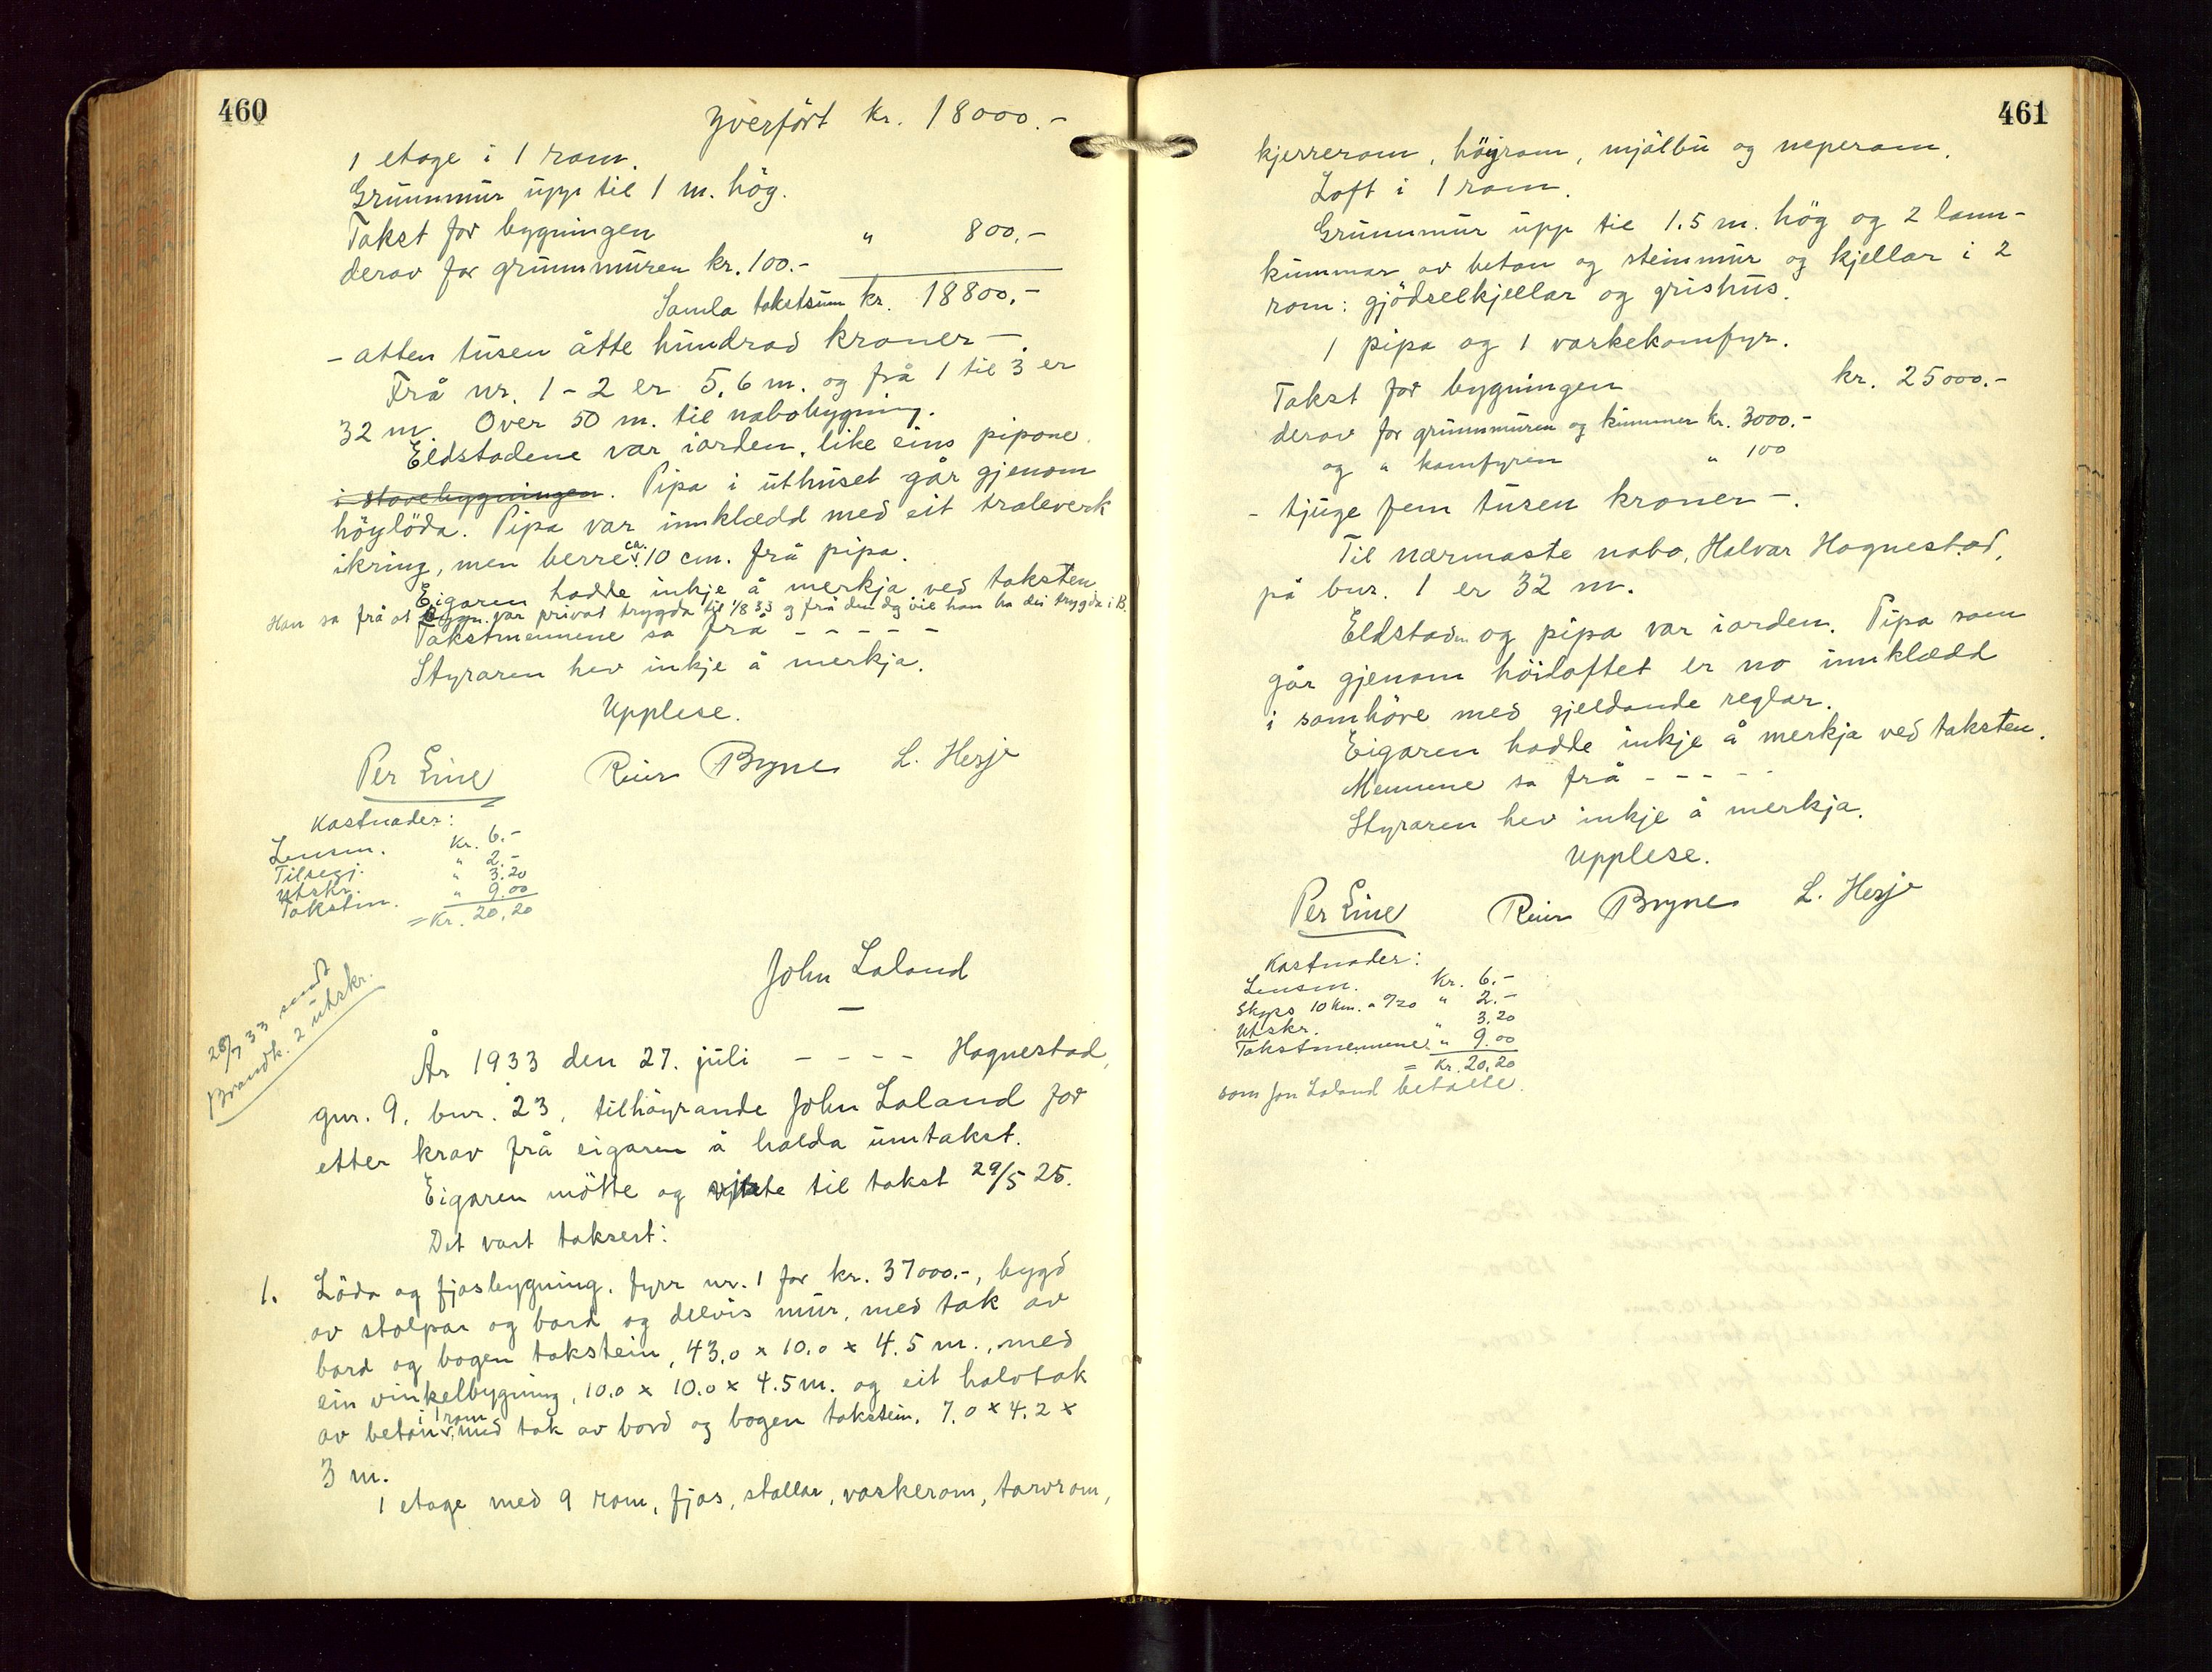 460
Yverfört kr. 18000.-
1 etage i 1 rom.
Grunnmur upp til 1 m. hög.
Takst for bygningen " 800.-
derav for grunnmuren kr. 100.-
Samla takstsum kr. 18800.-
- atten tusen åtte hundrad kroner -.
Frå nr. 1-2 er 5,6 m. og frå 1 til 3 er
32 m. Over 50 m. til nabobygning.
Eldstadene var iorden, like eins pipone
i stovebygningen. Pipa i uthuset går gjenom
höylöda. Pipa var innklædd med eit traleverk
ikring, men berre ca. 10 cm. frå pipa.
Eigaren hadde inkje å merkja ved taksten.
Han sa frå at bygn. var privat trygda til 1/8 33 og frå den dag vil han ha dei trygda i B.
Takstmennene sa frå - - - - -
Styraren hev inkje å merkja.
Upplese.
Per Line Reier Bryne L. Hesje
Kostnader:
Lensm. kr. 6.-
Tilsegj. " 2.-
Utskr. " 3.20
Takstm. " 9.00
= Kr. 20,20
John Laland
28/7 33 sendt
Brandk. 2 utskr.
År 1933 den 27. juli - - - - Hognestad,
gnr. 9, bnr. 23, tilhöyrande John Laland for
etter krav frå eigaren å halda umtakst.
Eigaren mötte og viste til takst 29/5 25.
Det vart taksert:
1. Löda og fjosbygning, fyrr nr. 1 for kr. 37000.-, bygd
av stolpar og bord og delvis mur, med tak av
bord og bogen takstein, 43,0 x 10,0 x 4.5 m., med
ein vinkelbygning, 10.0 x 10.0 x 4.5 m. og eit halvtak
av betong i 1 rom med tak av bord og bogen takstein, 7.0 x 4.2 x
3 m.
1 etage med 9 rom, fjos, stallar, vaskerom, torvrom,
461
kjerrerom, höyrom, mjölbu og neperom.
Loft i 1 rom.
Grunnmur upp til 1.5 m. hög og 2 lann-
kummar av beton og steinmur og kjellar i 2
rom: gjödselkjellar og grishus.
1 pipa og 1 vaskekomfyr.
Takst for bygningen kr. 25000.-
derav for grunnmuren og kummer kr. 3000.-
og " komfyren " 100
- tjuge fem tusen kroner -.
Til nærmaste nabo, Halvar Hognestad,
på bnr. 1 er 32 m.
Eldstaden og pipa var iorden. Pipa som
går gjenom höiloftet er no innklædd
i samhöve med gjeldande reglar.
Eigaren hadde inkje å merkja ved taksten.
Mennene sa frå - - - - -
Styraren hev inkje å merkja.
Upplese.
Per Line Reier Bryne L. Hesje
Kostnader:
Lensm. Kr. 6.-
Skyss 10 km. a 0/20 " 2.-
Utskr. 3,20
Takstmennene " 9.00
= Kr. 20,20
som Jon Laland betalte.